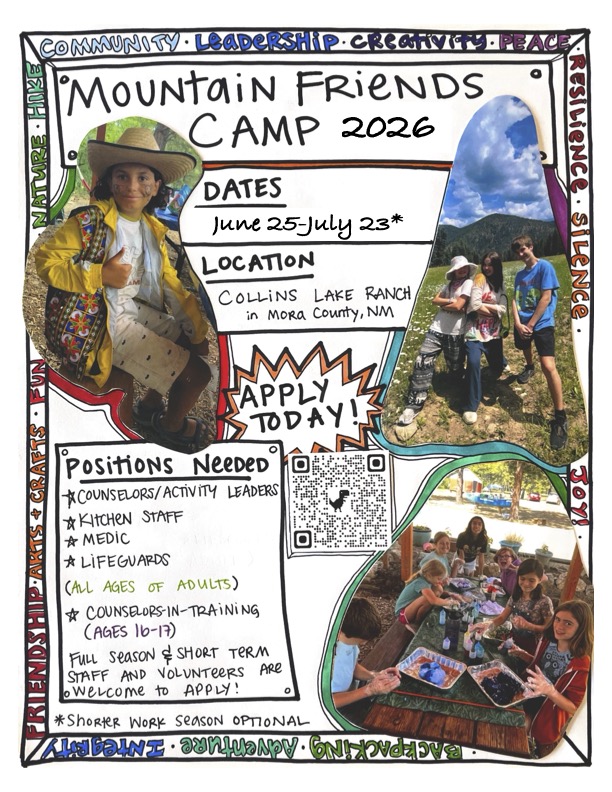 COMMUNITY · LEADERSHIP · CREATIVITY · PEACE
RESILIENCE · SILENCE · JOY!
MOUNTAIN FRIENDS
CAMP 2026
DATES
June 25-July 23*
LOCATION
COLLINS LAKE RANCH
in MORA County, NM
APPLY
TODAY!
POSITIONS NEEDED
☆ COUNSELORS/ACTIVITY LEADERS
☆ KITCHEN STAFF
☆ MEDIC
☆ LIFEGUARDS
(ALL AGES OF ADULTS)
☆ COUNSELORS-IN-TRAINING
(AGES 16-17)
FULL SEASON & SHORT TERM
STAFF AND VOLUNTEERS ARE
WELCOME TO APPLY!
*SHORTER WORK SEASON OPTIONAL
BACKPACKING · Adventure · INTEGRITY
FRIENDSHIP · ARTS + CRAFTS · FUN
NATURE · HIKE